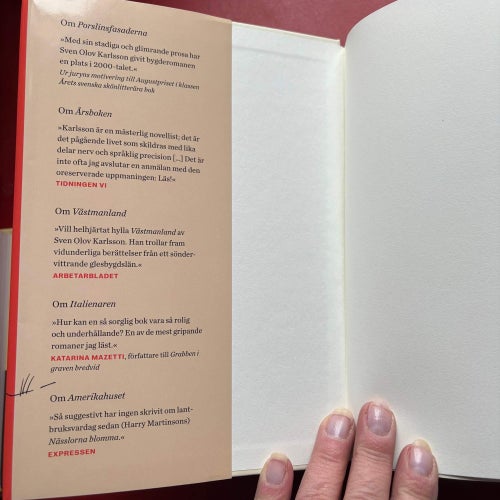 Om Porslinsfasaderna
»Med sin stadiga och glimrande prosa har
Sven Olov Karlsson givit bygderomanen
en plats i 2000-talet.«
Ur juryns motivering till Augustpriset i klassen
Årets svenska skönlitterära bok
Om Årsboken
»Karlsson är en mästerlig novellist; det är
det pågående livet som skildras med lika
delar nerv och språklig precision [...] Det är
inte ofta jag avslutar en anmälan med den
oreserverade uppmaningen: Läs!«
TIDNINGEN VI
Om Västmanland
»Vill helhjärtat hylla Västmanland av
Sven Olov Karlsson. Han trollar fram
vidunderliga berättelser från ett sönder-
vittrande glesbygdslän.«
ARBETARBLADET
Om Italienaren
»Hur kan en så sorglig bok vara så rolig
och underhållande? En av de mest gripande
romaner jag läst.«
KATARINA MAZETTI, författare till Grabben i
graven bredvid
Om Amerikahuset
»Så suggestivt har ingen skrivit om lant-
bruksvardag sedan (Harry Martinsons)
Nässlorna blomma.«
EXPRESSEN